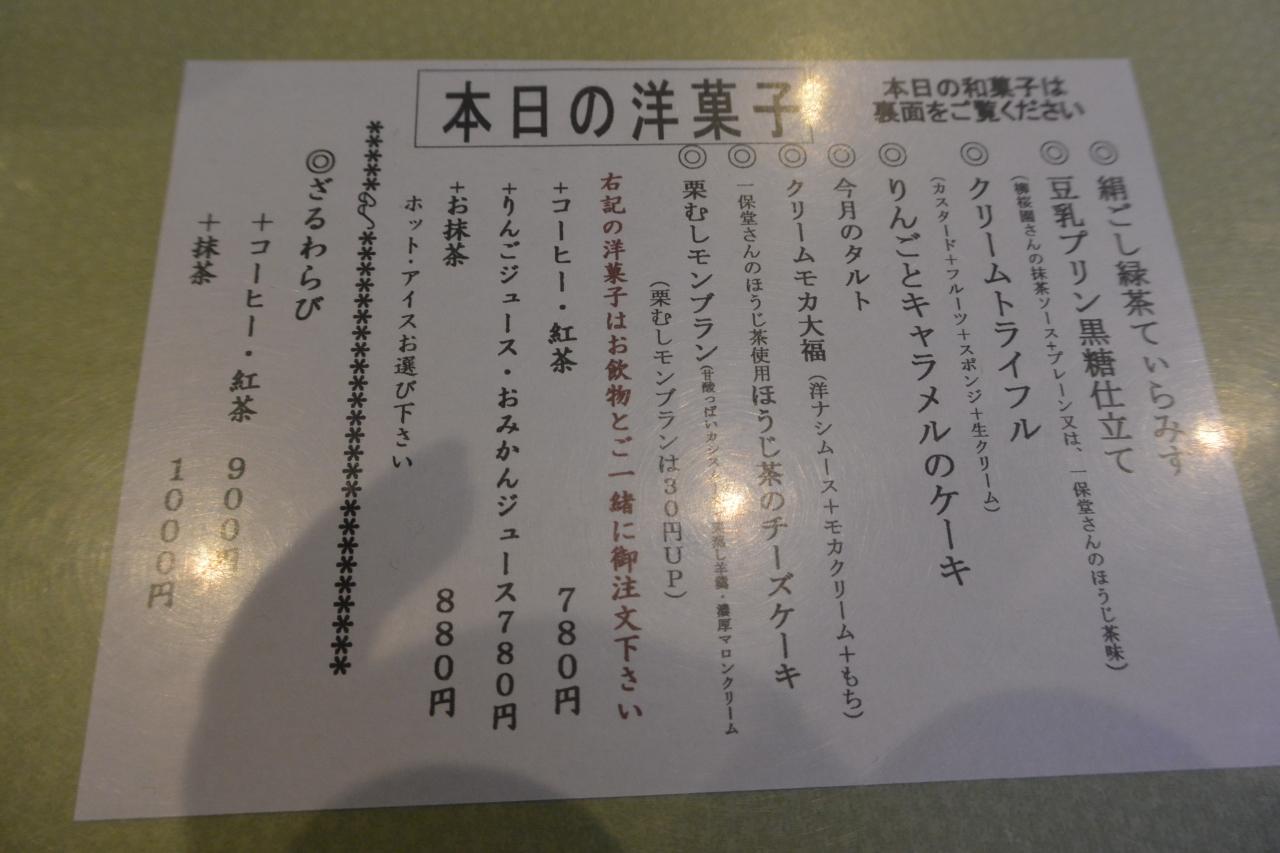 本日の和菓子は
裏面をご覧ください
本日の洋菓子
◎絹ごし緑茶てぃらみす
◎豆乳プリン黒糖仕立て
(柳桜園さんの抹茶ソース+プレーン又は、一保堂さんのほうじ茶味)
◎クリームトライフル
(カスタード+フルーツ+スポンジ+生クリーム)
◎りんごとキャラメルのケーキ
◎今月のタルト
◎クリームモカ大福(洋ナシムース+モカクリーム+もち)
◎一保堂さんのほうじ茶使用ほうじ茶のチーズケーキ
◎栗むしモンブラン(甘酸っぱいカシス・栗蒸し羊羹・濃厚マロンクリーム
(栗むしモンブランは30円UP)
右記の洋菓子はお飲物とご一緒に御注文下さい
+コーヒー・紅茶 780円
+りんごジュース・おみかんジュース780円
+お抹茶 880円
ホット・アイスお選び下さい
◎ざるわらび
+コーヒー・紅茶 900円
+抹茶 1000円